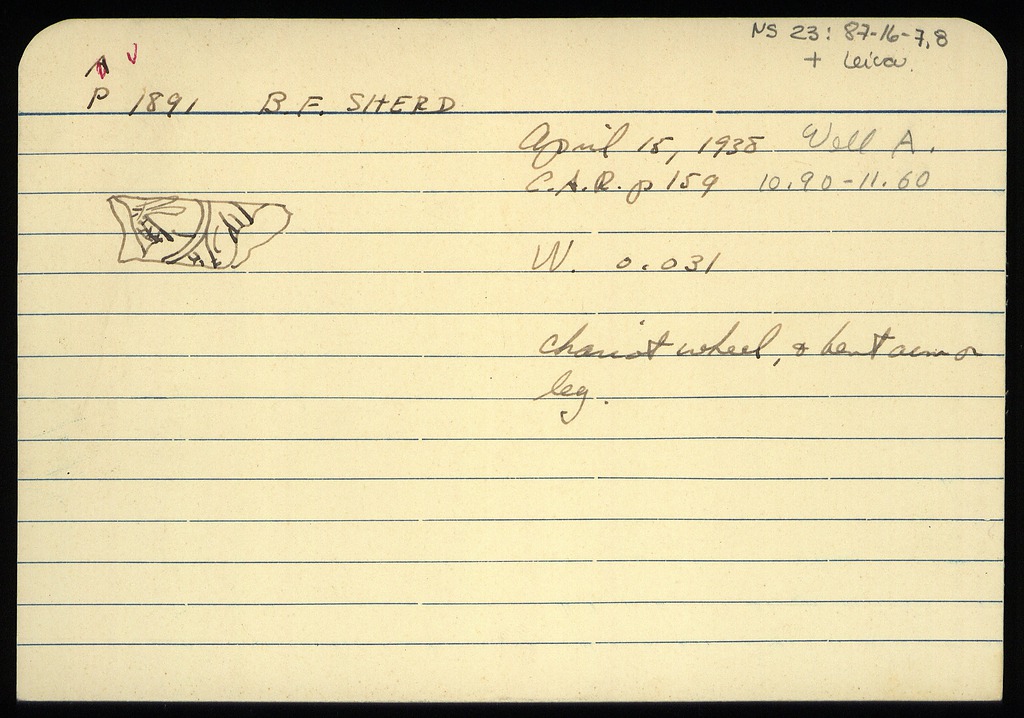 NS 23: 87-16-7,8
+ Leica.
P 1891 B.F. SHERD
April 15, 1938 Well A.
C.A.R. p 159 10.90-11.60
W. 0.031
chariot wheel, & bent arm or
leg.